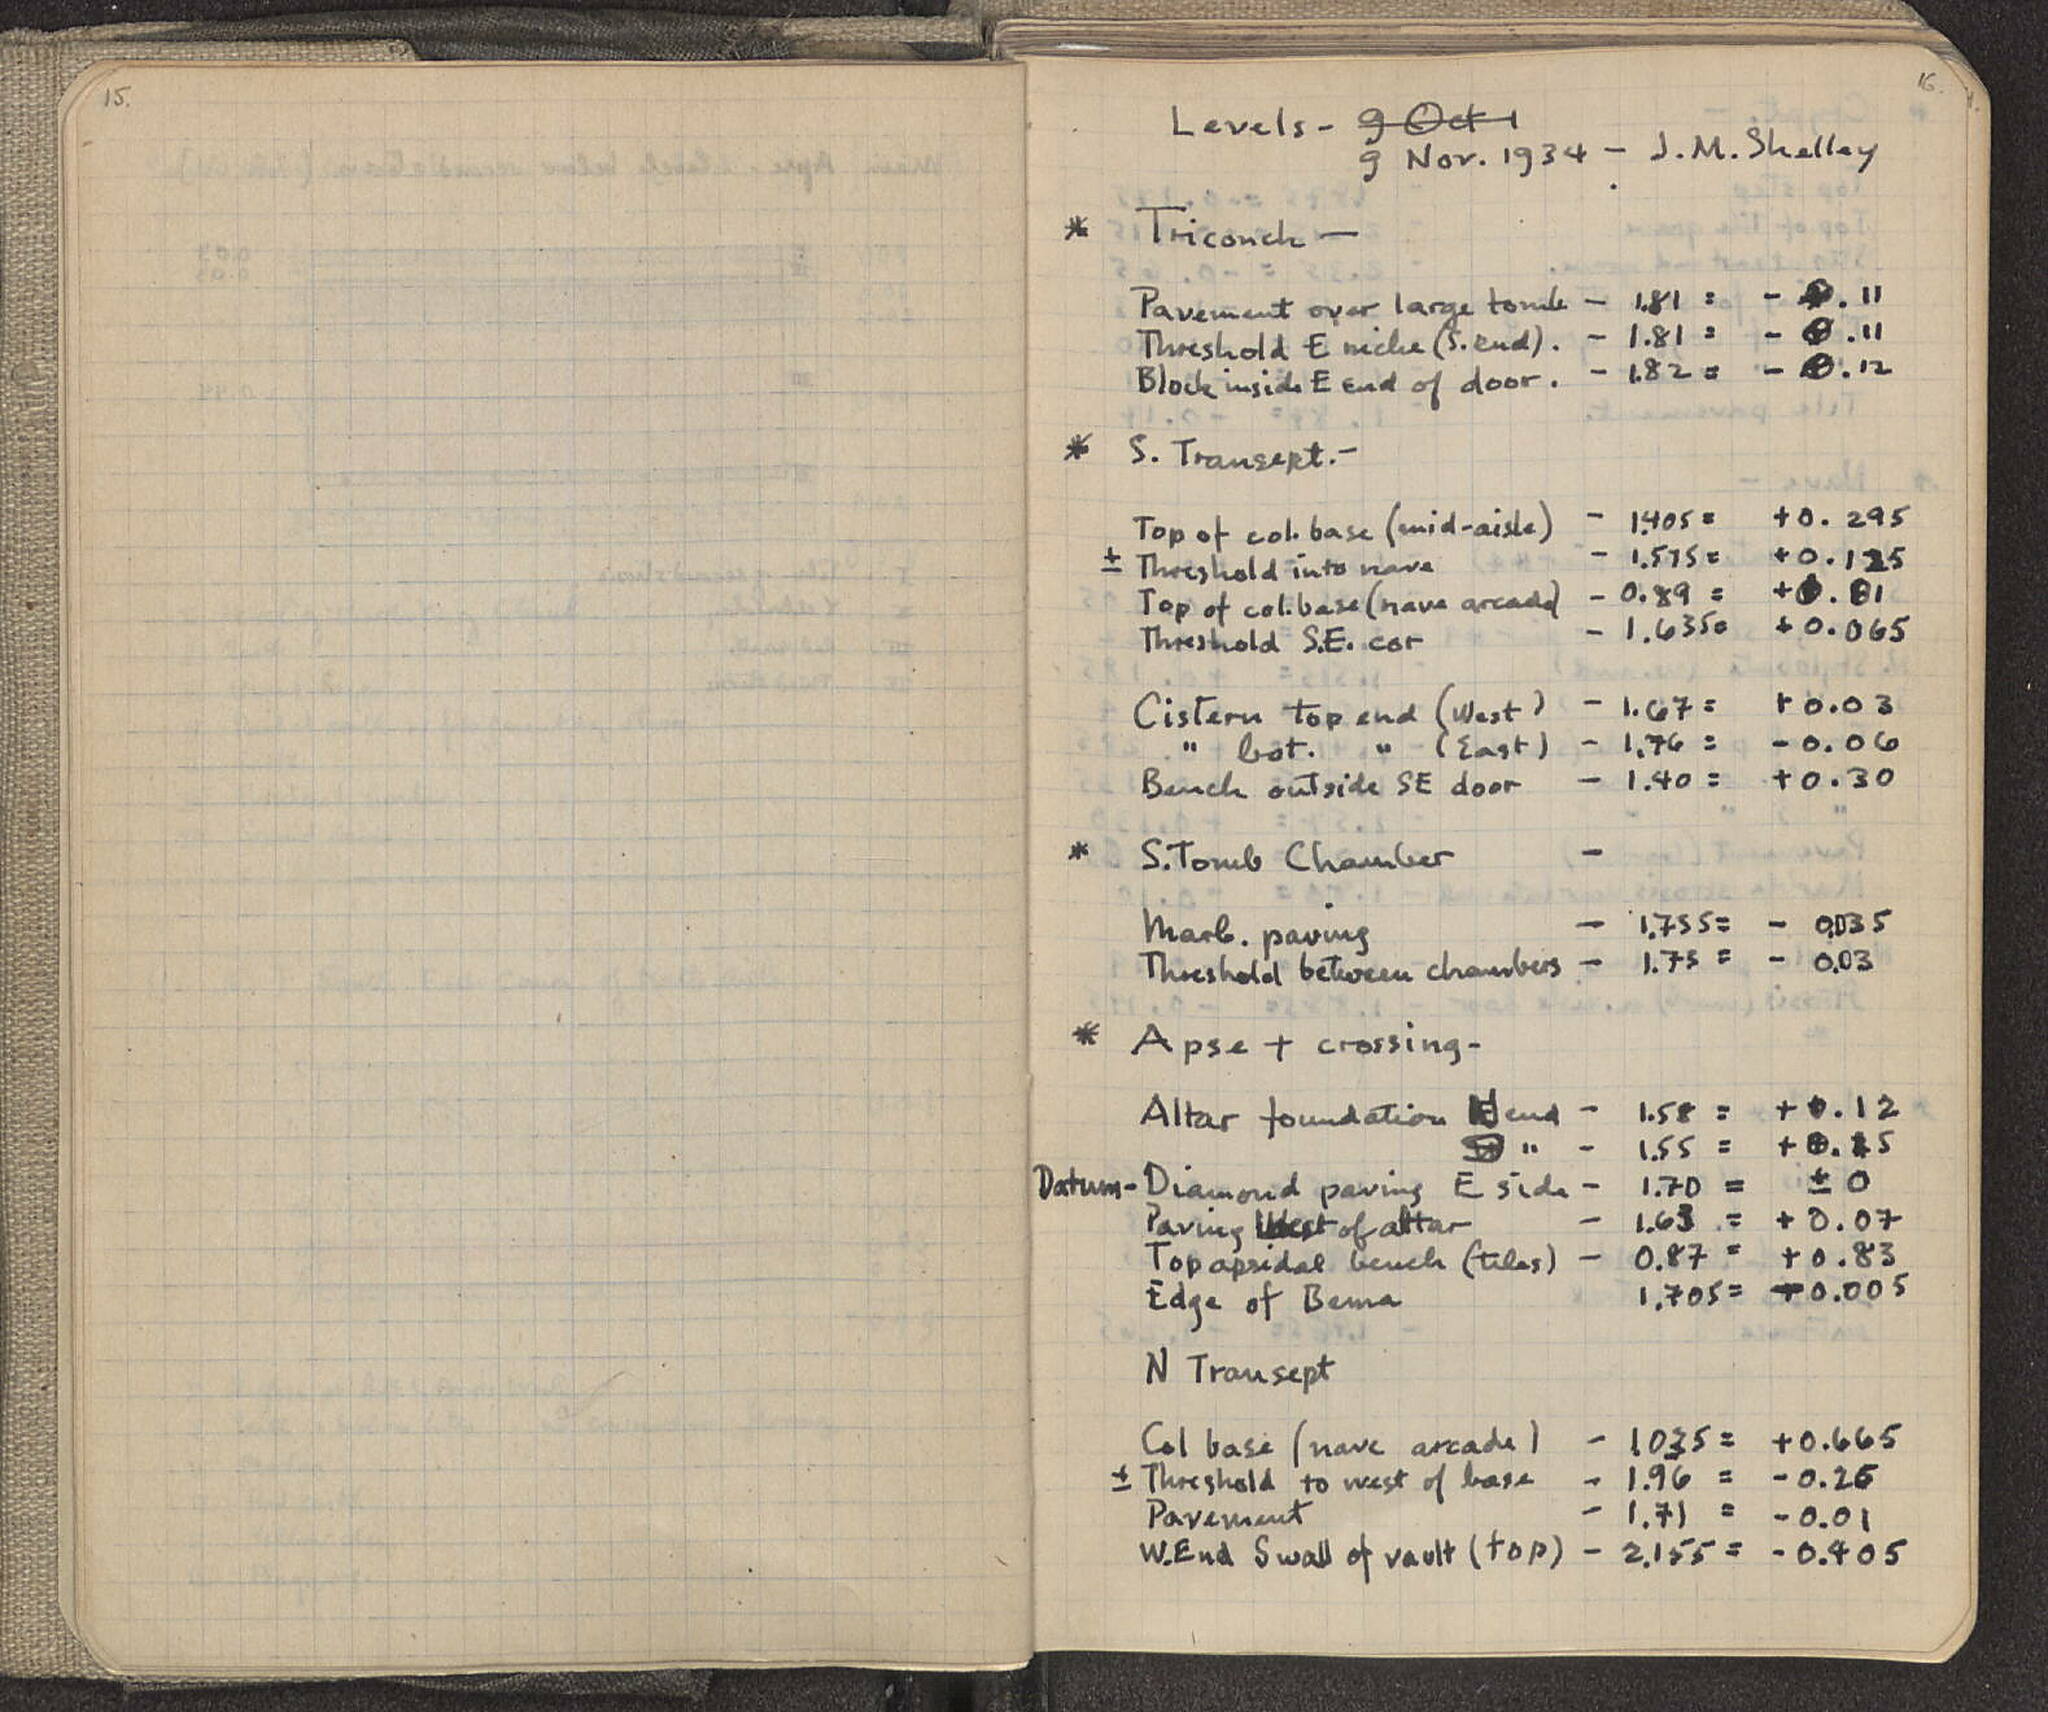 15.
16.
Levels - 9 Oct
9 Nov. 1934 - J.M. Shelley
* Triconch -
Pavement over large tomb - 1.81 = - 0.11
Threshold E niche (S. end). - 1.81 = - 0.11
Block inside E end of door. - 1.82 = - 0.12
* S. Transept. -
Top of col. base (mid-aisle) - 1.405 = +0.295
± Threshold into nave - 1.575 = +0.125
Top of col. base (nave arcade) - 0.89 = +0.81
Threshold S.E. cor - 1.635 = +0.065
Cistern top end (West) - 1.67 = +0.03
" bot. " (East) - 1.76 = -0.06
Bench outside SE door - 1.40 = +0.30
* S. Tomb Chamber -
Marb. paving - 1.735 = - 0.035
Threshold between chambers - 1.73 = - 0.03
* Apse + crossing -
Altar foundation N end - 1.58 = +0.12
S " - 1.55 = +0.15
Datum - Diamond paving E side - 1.70 = ± 0
Paving West of altar - 1.63 = +0.07
Top apsidal bench (tiles) - 0.87 = +0.83
Edge of Bema 1.705 = -0.005
N Transept
Col base (nave arcade) - 1.035 = +0.665
± Threshold to west of base - 1.96 = -0.26
Pavement - 1.71 = -0.01
W. End S wall of vault (top) - 2.155 = -0.405